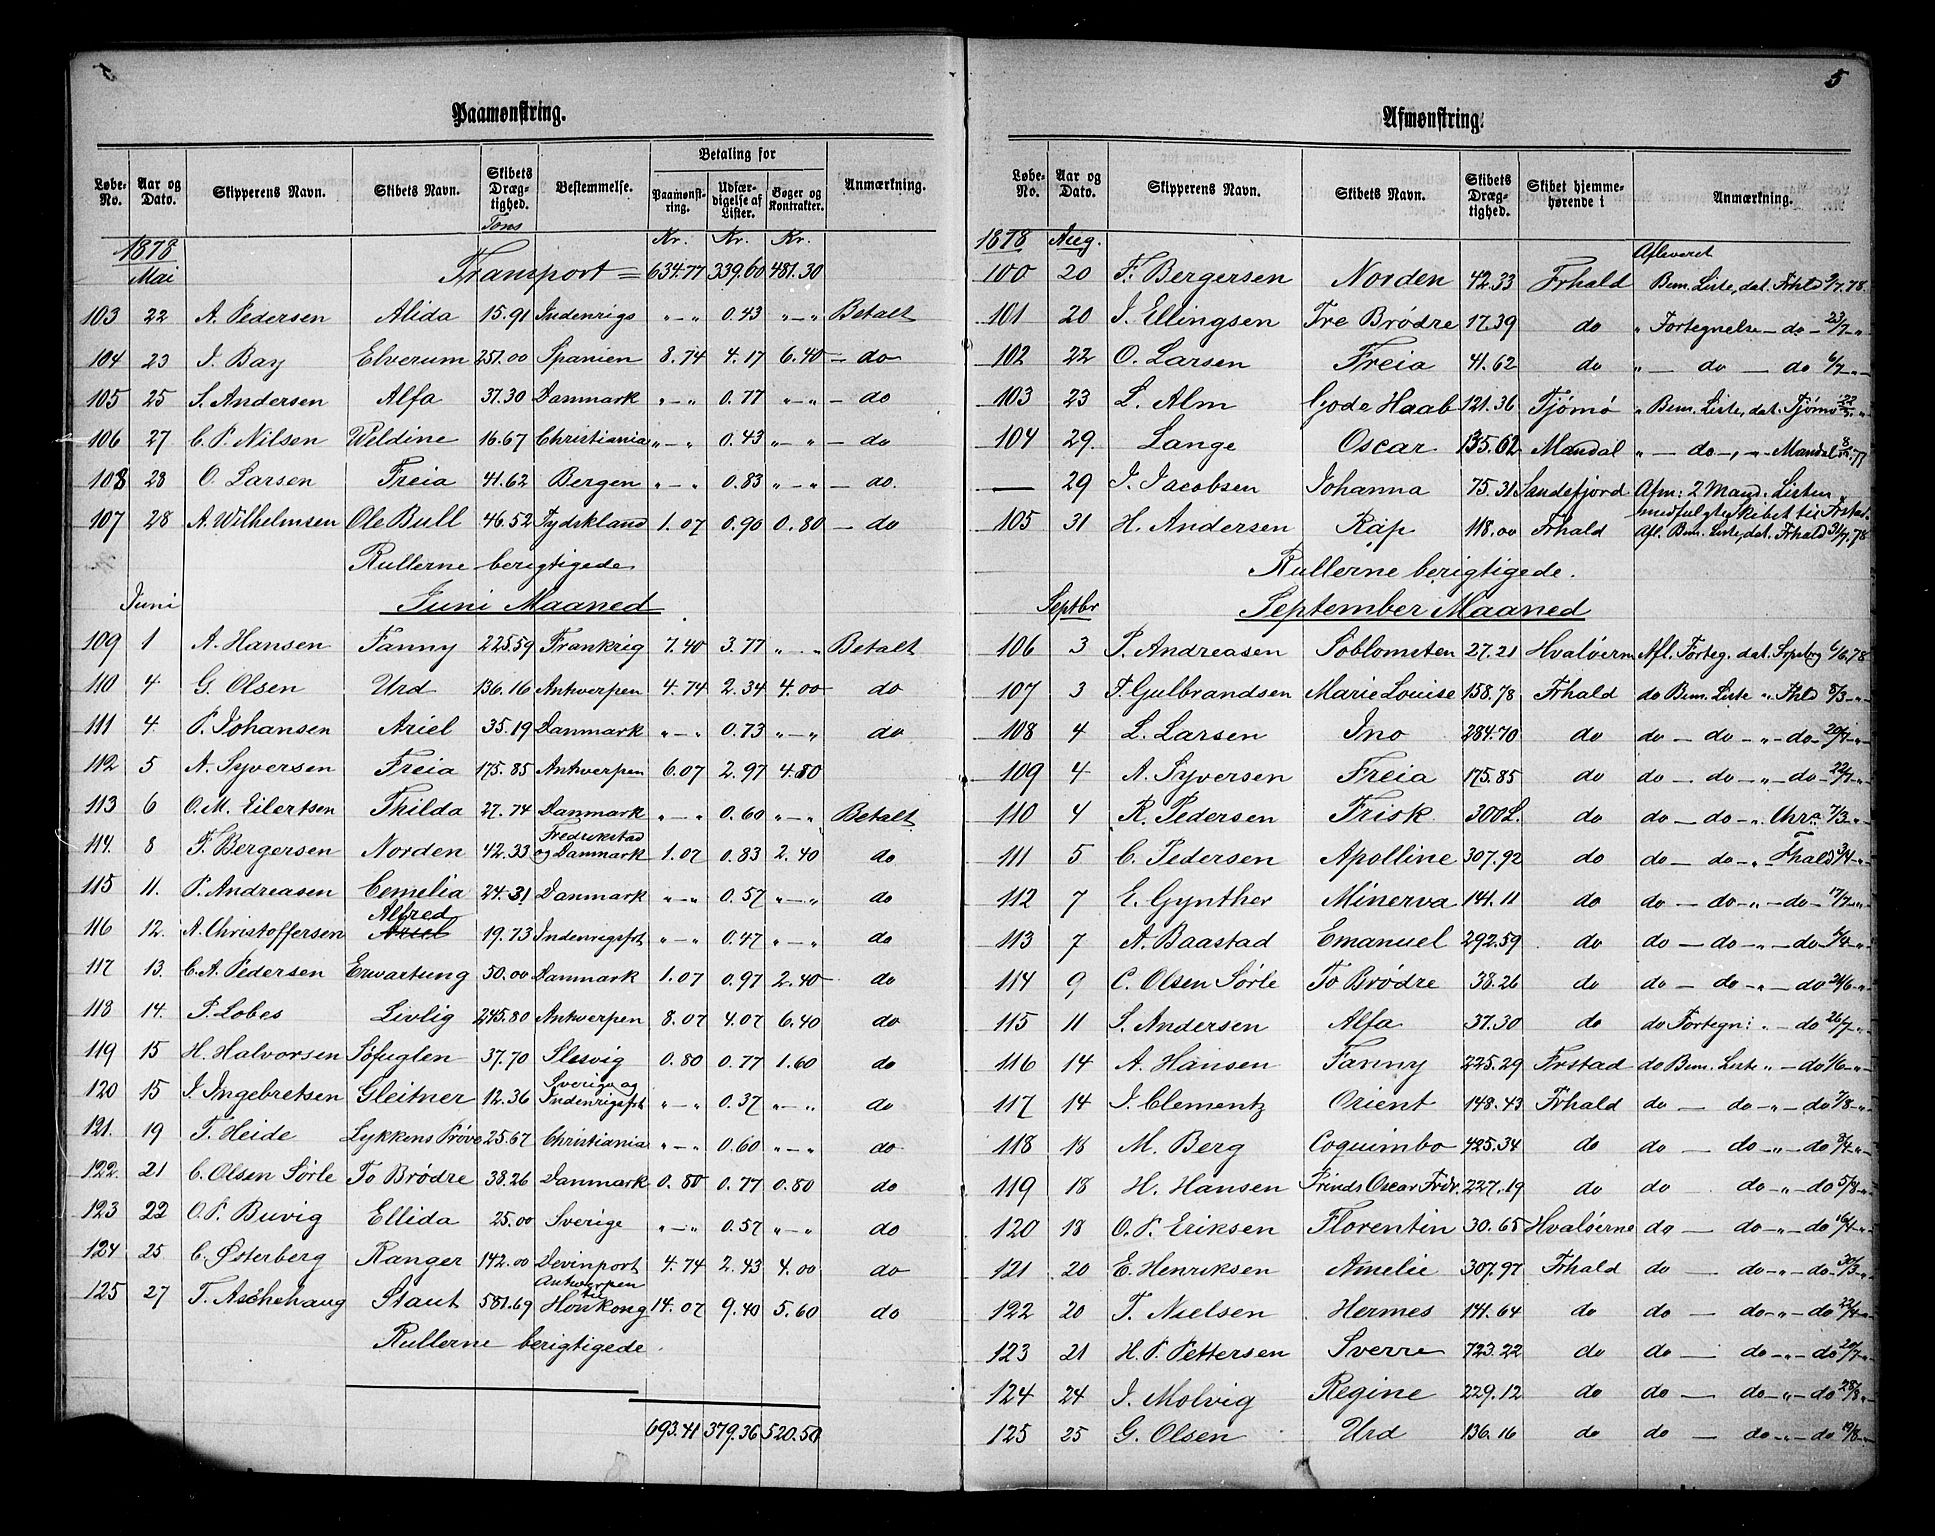 5
Paamønstring.
Løbe-No. Aar og Dato. Skipperens Navn. Skibets Navn. Skibets Dræg-tighed. Bestemmelse. Betaling for Paamønst-ring. Udfær-digelse af Lister. Bøger og Kontrakter. Anmærkning.
Tons Kr. Kr. Kr.
1878 Mai Transport = 634.77 339.60 481.30
103 22 A. Pedersen Alida 15.91 Indenrigs " - " 0.43 " - " Betalt
104 23 J. Bay Elverum 251.00 Spanien 8.74 4.17 6.40 - do
105 25 S. Andersen Alfa 37.30 Danmark " - " 0.77 " - " - do
106 27 C. P. Nilsen Weldine 16.67 Christiania " - " 0.43 " - " - do
108 28 O. Larsen Freia 41.62 Bergen " - " 0.83 " - " - do.
107 28 A. Wilhelmsen Ole Bull 46.52 Tydskland 1.07 0.90 0.80 - do
Rullerne berigtigede
Juni Juni Maaned
109 1 A. Hansen Fanny 225.59 Frankrig 7.40 3.77 " - " Betalt
110 4 G. Olsen Urd 136.16 Antwerpen 4.74 2.34 4.00 do
111 4. P. Johansen Ariel 35.19 Danmark " - " 0.73 " - " do
112 5 A. Syversen Freia 175.85 Antwerpen 6.07 2.97 4.80
113 6 O. M. Eilertsen Thilda 27.74 Danmark " - " 0.60 " - " Betalt
114. 8 F. Bergersen Norden 42.33 Fredrikstad og Danmark 1.07 0.83 2.40 do
115 11. P. Andreasen Cemelia 24.31 Danmark " - " 0.57 " - " do
116 12. A. Christoffersen Alfred Ariel 19.73 Indenrigsfrt " - " 0.47 " - " do
117 13. C. A. Pedersen Erwartung 50.00 Danmark 1.07 0.97 2.40 do
118 14. P. Lobes Livlig 245.80 Antwerpen 8.07 4.07 6.40 do
119 15 H. Halvorsen Søfuglen 37.70 Slesvig 0.80 0.77 1.60 do
120 15 J. Ingebretsen Gleitner 12.36 Sverige og Indenrigsfrt " - " 0.37 " - " do
121. 19 T. Heide Lykkens Prøve 25.67 Christiania " - " 0.60 " - " do
122. 21 C. Olsen Sørle To Brødre 38.26 Danmark 0.80 0.77 0.80 do
123 22 O. P. Buvig Ellida 25.00 Sverige " - " 0.57 " - " do
124 25 C. Østerberg Ranger 142.00 Devinport 4.74 2.43 4.00 do
125 27 T. Aschehaug Staut 581.69 Antwerpen til Honkong 14.07 9.40 5.60 do
Rullerne berigtigede.
693.41 379.36 520.50
Afmønstring.
Løbe-No. Aar og Dato. Skipperens Navn. Skibets Navn. Skibets Dræg-tighed. Skibet hjemme-hørende i Anmærkning.
1878 Aug. Afleveret
100 20 F. Bergersen Norden 42.33 Frhald Bem. Liste, dat. Frhld 9/7.78.
101 20 J. Ellingsen Tre Brødre 17.39 do " Fortegnelse - do - 23/7 "
102 22 O. Larsen Freia 41.62 do " - do - do 6/7 - "
103 23 L. Alm Gode Haab 121.36 Tjømø " Bem. Liste, dat. Tjømø 22/3 "
104 29. Lange Oscar 135.62 Mandal " - do -, - Mandal 77
— 29 J. Jacobsen Johanna 75.31 Sandefjord Afm: 2 Mand. Listen medfulgte Skibet til Frstad.
105 31 H. Andersen Rap 118.00 Frhald Afl. Bem. Liste, dat. Frhald 31/7.78
Rullerne berigtigede.
Septbr September Maaned
106 3 P. Andreasen Søblomsten 27.21 Hvaløerne Afl. Forteg. dat. 6/6.78
107 3 F. Gulbrandsen Marie Louise 158.78 Frhald do Bem. Liste " Fhld 8/3 - "
108 4 L. Larsen Ino 284.70 do do - do - " - do - 20/7 - "
109 4 A. Syversen Freia 175.85 do do - do - " - do - 22/7 - "
110 4 R. Pedersen Frisk 300 L. do do - do - " Chra. 7/3 - "
111 5 C. Pedersen Apolline 307.92 do do - do - " Fhald 3/4 - "
112 7 E. Gynther Minerva 141.11 do do - do - " - do - 17/7 - "
113 7 A. Baastad Emanuel 292.59 do do - do - " - do 2/4 - "
114 9 C. Olsen Sørle To Brødre 38.26 do do - do - " - do 21/6 - "
115 11 S. Andersen Alfa 37.30 do do Fortegn: " - do 26/7 - "
116 14 A. Hansen Fanny 225.29 Frstad do Bem. Liste " - do 1/6 - "
117 14 J. Clementz Orient 148.43 Frhald do - do - " - do 7/8 - "
118 18 M. Berg Coquimbo 425.34 do do do - " - do 8/4 - "
119 18 H. Hansen Prinds Oscar Frdr. 227.19 do do do - " - do 5/8 - "
120 18 O. P. Eriksen Florentin 30.65 Hvaløerne do - do - " - do 16/4 - "
121 20 E. Henriksen Amelie 307.97 Frhald do - do - " - do - 30/3 - "
122 20 T. Nielsen Hermes 141.64 do do - do - " - do 22/4 - "
123 21 H. P. Pettersen Sverre 723.22 do do - do - " - do 20/7 - "
124 24 J. Molvig Regine 229.12 do do - do - " - do 28/8 - "
125 25 G. Olsen Urd 136.16 do do - do - " - do 19/8 - "